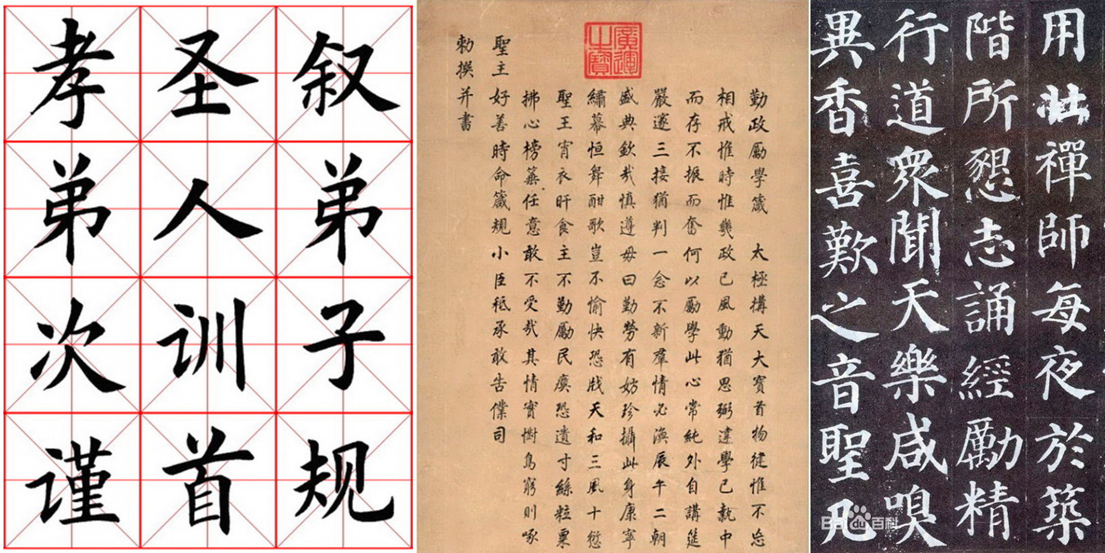 叙弟子规
圣人训首
孝弟次谨
廣運之寶
勤政勵學箴 太極構天大寶首物惟不
相戒惟時惟幾政已風動猶思弼違學已執中
而存不振而奮何以勵學此心常純外自講筵
嚴邃三接猶判一念不新羣情必渙辰午二朝
盛典欽哉慎遵毋曰勤勞有妨珍攝此身康寧
繡幕恒舞酣歌豈不愉快恐戕天和三風十愆
聖王宵衣旰食主不勤勵民瘼恐遺寸絲粒粟
拂心榜箠任意敢不受哉其情實慟鳥窮則啄
聖主好善時命箴規小臣祗承敢告僕司
勅撰并書
用禪師每夜於築
階所懇志誦經勵精
行道眾聞天樂咸嗅
異香喜歎之音聖凡
Baidu百科